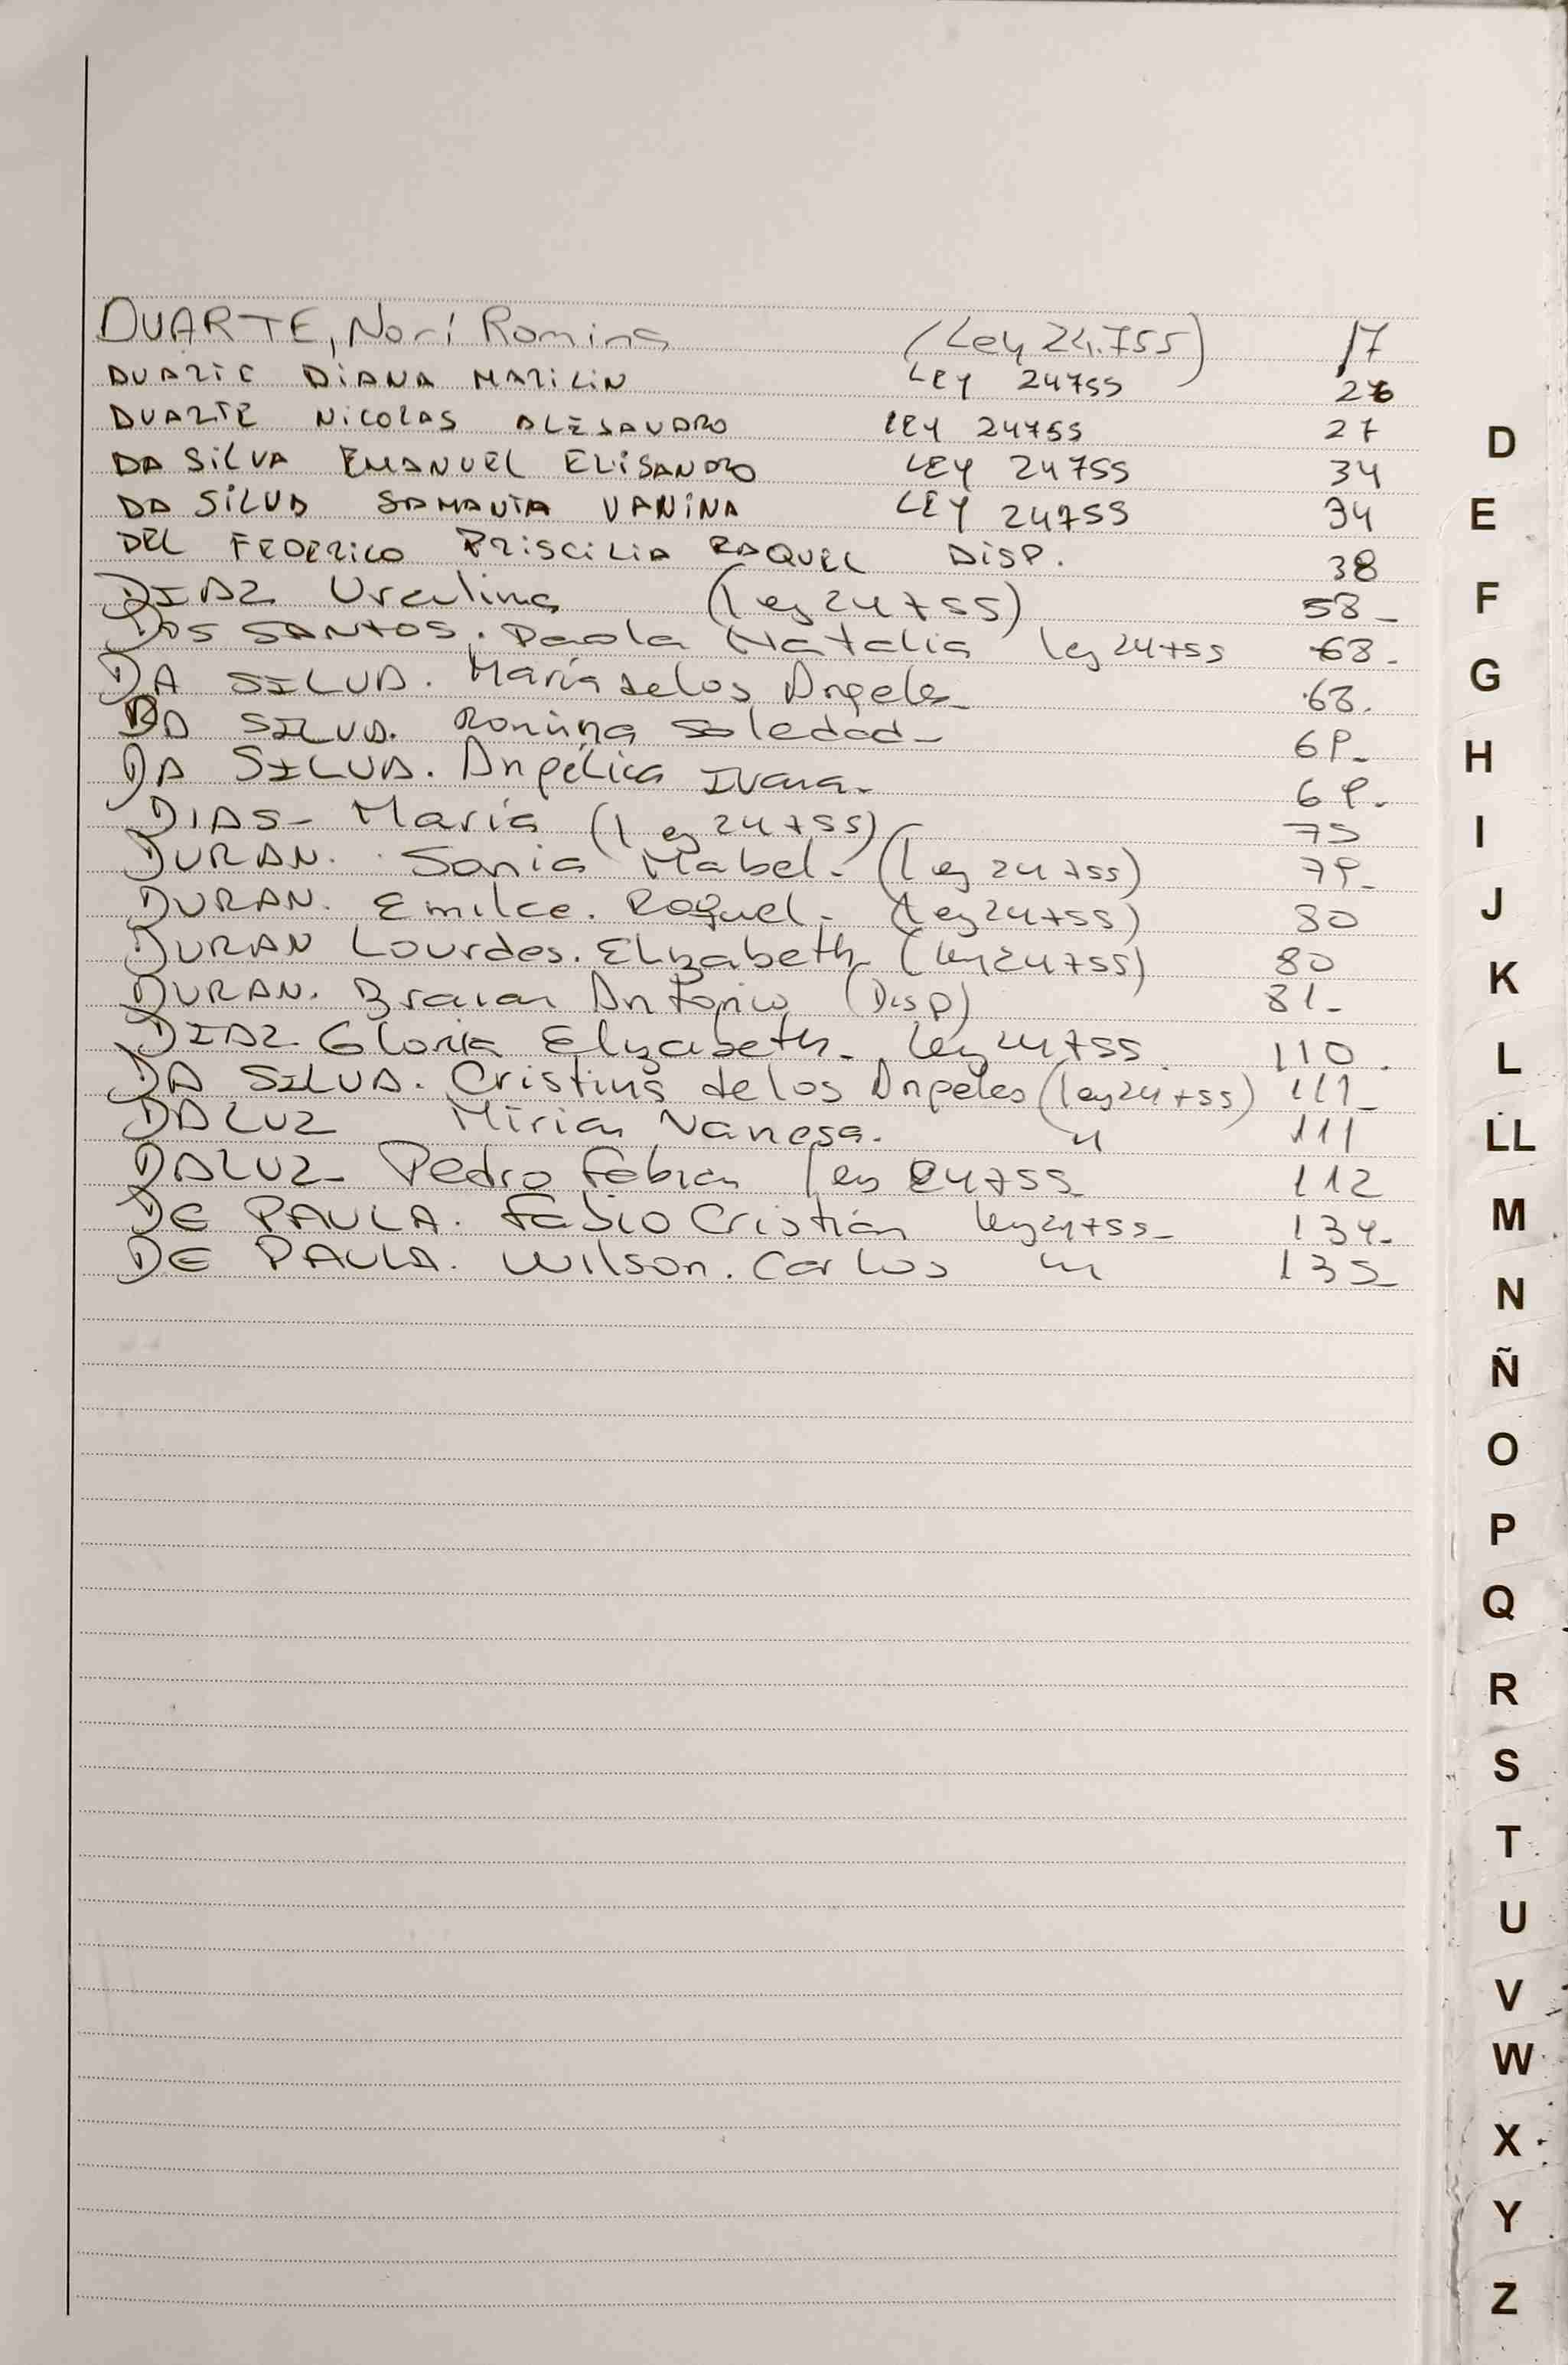 DUARTE, Norí Romina (Ley 24.755) 17
DUARTE DIANA MARILIN LEY 24755 26
DUARTE NICOLAS ALESANDRO LEY 24755 27
DA SILVA EMANUEL ELISANDRO LEY 24755 34
DA SILVA SAMANTA VANINA LEY 24755 34
DEL FEDERICO PRISCILIA RAQUEL DISP. 38
DIAZ Urculina (Ley 24755) 58-
DOS SANTOS. Paola Natalia ley 24755 68-
DA SILVA. María de los Angeles- 68.
DA SILVA. Romina Soledad- 69-
DA SILVA. Angélica Ivana- 69-
DIAS- María (Ley 24755) 75
DURAN. Sonia Mabel- (Ley 24755) 79-
DURAN. Emilce. Raquel- (Ley 24755) 80
DURAN Lourdes. Elizabeth- (Ley 24755) 80
DURAN. Braian Antonio (Disp) 81-
DIAZ Gloria Elizabeth- Ley 24755 110
DA SILVA. Cristina de los Angeles (ley 24755) 111-
DALUZ Mirian Vanesa. " 111
DALUZ- Pedro Fabian Ley 24755- 112
DE PAULA. Fabio Cristián ley 24755- 134-
DE PAULA. Wilson. Carlos " 135-
D
E
F
G
H
I
J
K
L
LL
M
N
Ñ
O
P
Q
R
S
T
U
V
W
X
Y
Z